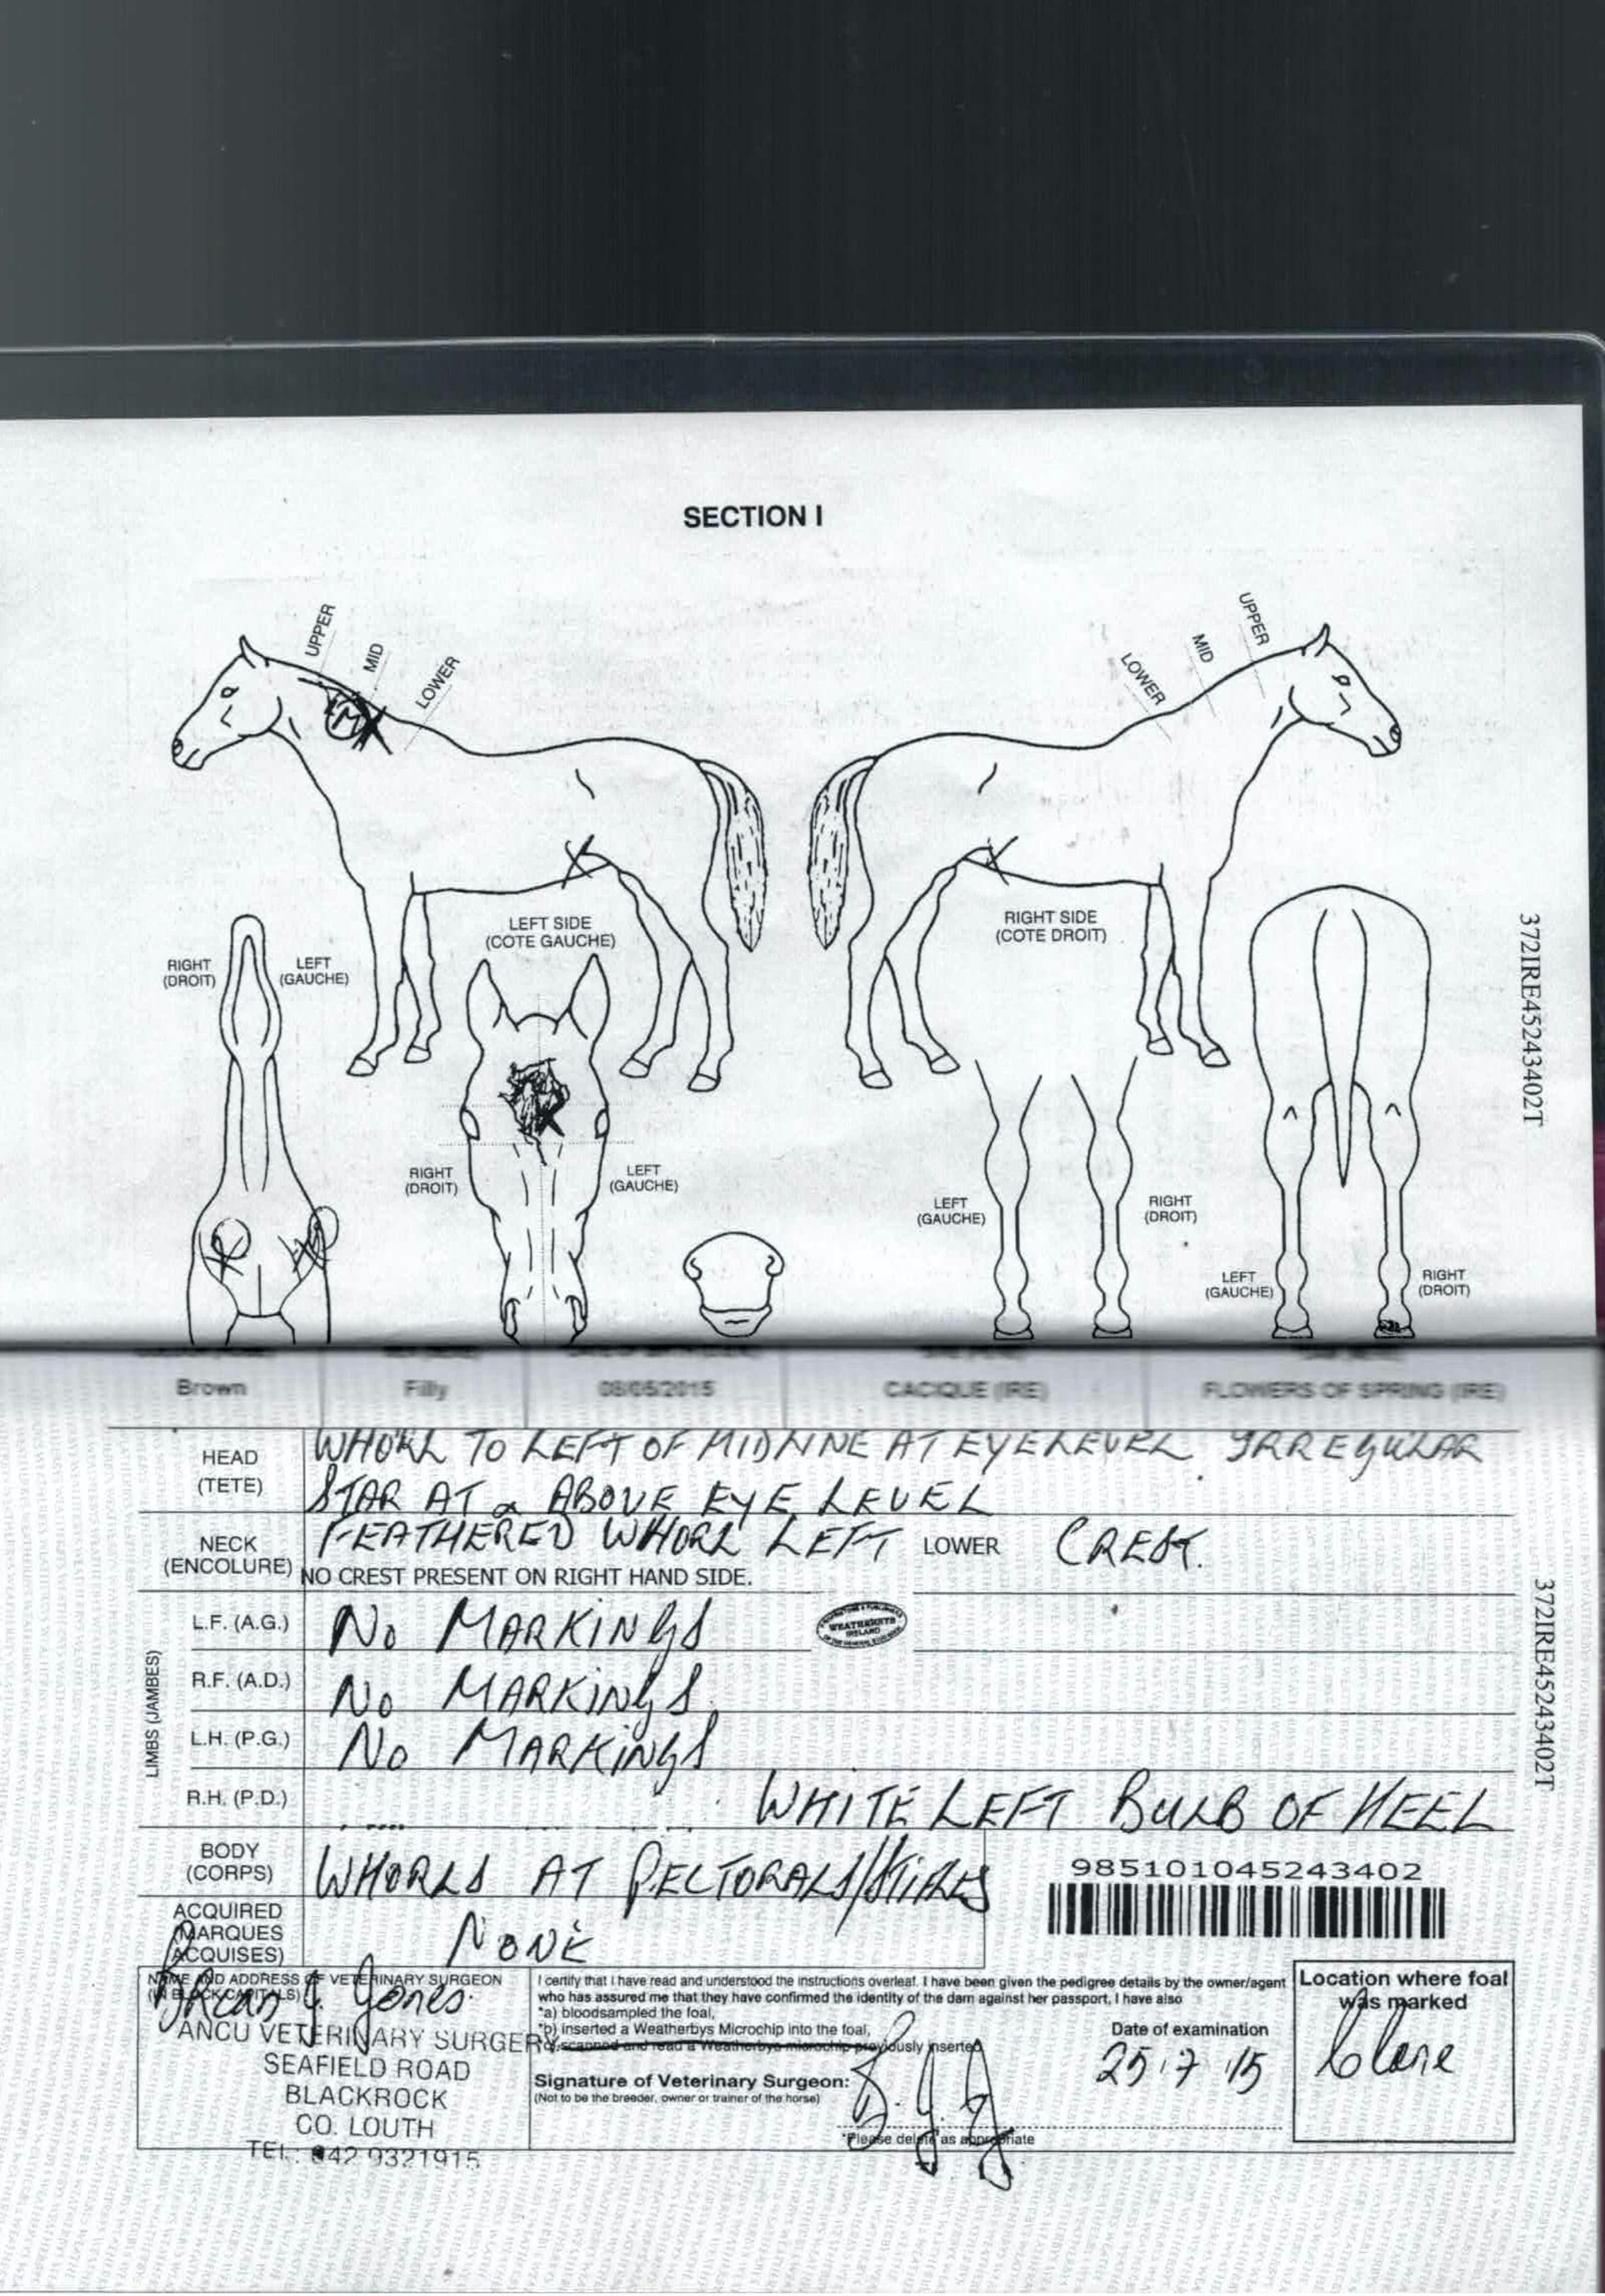 SECTION I
UPPER
MID
LOWER
UPPER
MID
LOWER
M
LEFT SIDE
(COTE GAUCHE)
RIGHT SIDE
(COTE DROIT)
RIGHT
(DROIT)
LEFT
(GAUCHE)
372IRE45243402T
RIGHT
(DROIT)
LEFT
(GAUCHE)
LEFT
(GAUCHE)
RIGHT
(DROIT)
LEFT
(GAUCHE)
RIGHT
(DROIT)
Brown Filly 08/05/2015 CACIQUE (IRE) FLOWERS OF SPRING (IRE)
HEAD
(TETE)
WHORL TO LEFT OF MIDLINE AT EYE LEVEL. IRREGULAR
STAR AT & ABOVE EYE LEVEL
NECK
(ENCOLURE)
FEATHERED WHORL LEFT LOWER CREST.
NO CREST PRESENT ON RIGHT HAND SIDE.
LIMBS (JAMBES)
L.F. (A.G.) NO MARKINGS
WEATHERBYS
IRELAND
R.F. (A.D.) NO MARKINGS
L.H. (P.G.) NO MARKINGS
R.H. (P.D.) WHITE LEFT BULB OF HEEL
372IRE45243402T
BODY
(CORPS)
WHORLS AT PECTORALS/STIFLES
985101045243402
ACQUIRED
(MARQUES
ACQUISES)
NONE
NAME AND ADDRESS OF VETERINARY SURGEON
(IN BLOCK CAPITALS)
Brian J. Jones
ANCU VETERINARY SURGERY
SEAFIELD ROAD
BLACKROCK
CO. LOUTH
TEL: 042 9321915
I certify that I have read and understood the instructions overleaf. I have been given the pedigree details by the owner/agent
who has assured me that they have confirmed the identity of the dam against her passport, I have also
*a) bloodsampled the foal,
*b) inserted a Weatherbys Microchip into the foal,
scanned and read a Weatherbys microchip previously inserted
Signature of Veterinary Surgeon:
(Not to be the breeder, owner or trainer of the horse)
B.J.J
*Please delete as appropriate
Date of examination
25.7.15
Location where foal
was marked
Clare